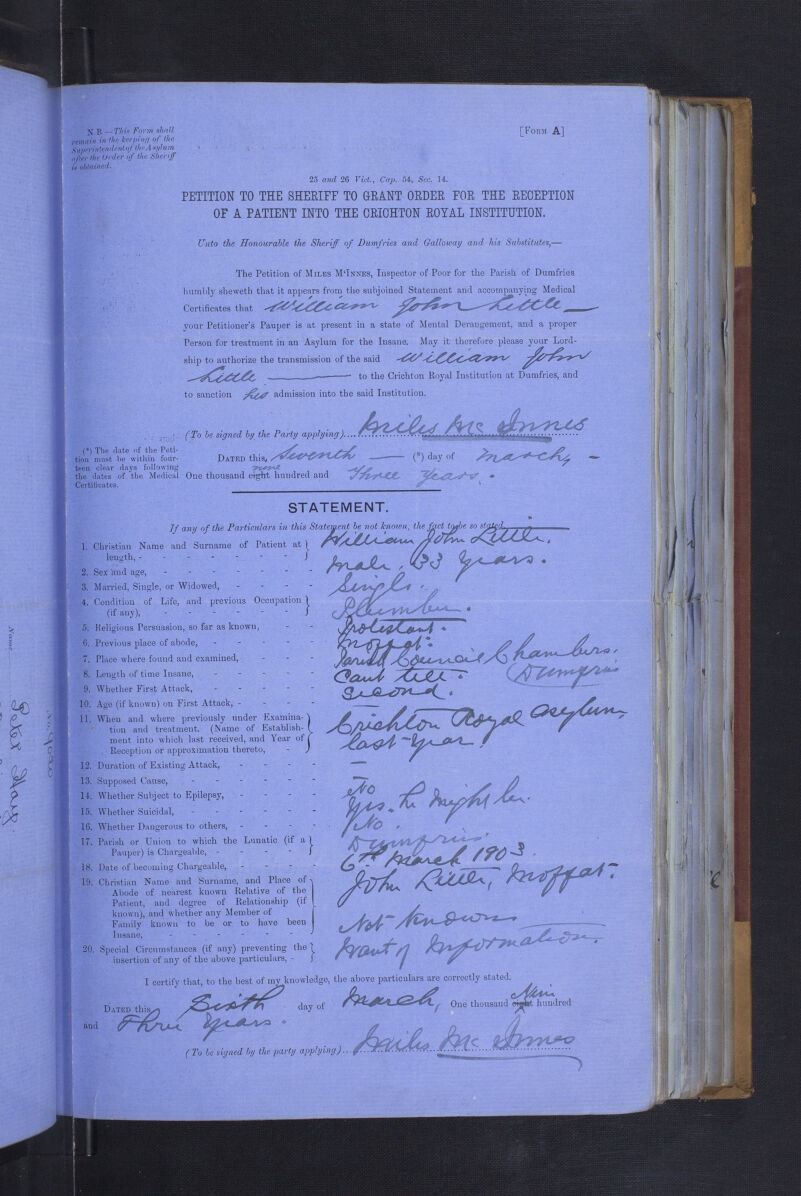 N.B.—This Form shall
remain in the keeping of the
Superintendent of the Asylum
after the Order of the Sheriff
is obtained.
[Form A]
25 and 26 Vict., Cap. 54, Sec. 14.
PETITION TO THE SHERIFF TO GRANT ORDER FOR THE RECEPTION
OF A PATIENT INTO THE CRICHTON ROYAL INSTITUTION.
Unto the Honourable the Sheriff of Dumfries and Galloway and his Substitutes,—
The Petition of Miles M'Innes, Inspector of Poor for the Parish of Dumfries
humbly sheweth that it appears from the subjoined Statement and accompanying Medical
Certificates that William John Little
your Petitioner's Pauper is at present in a state of Mental Derangement, and a proper
Person for treatment in an Asylum for the Insane. May it therefore please your Lord-
ship to authorize the transmission of the said William John
Little to the Crichton Royal Institution at Dumfries, and
to sanction his admission into the said Institution.
(To be signed by the Party applying) Miles Mc Innes
(*) The date of the Peti-
tion must be within four-
teen clear days following
the dates of the Medical
Certificates.
Dated this, Seventh (*) day of March,
One thousand eight nine hundred and Three Years.
STATEMENT.
If any of the Particulars in this Statement be not known, the fact to be so stated.
1. Christian Name and Surname of Patient at
length, - William John Little.
2. Sex and age, - Male, 33 Years.
3. Married, Single, or Widowed, - Single.
4. Condition of Life, and previous Occupation
(if any), - Plumber.
5. Religious Persuasion, so far as known, - Protestant.
6. Previous place of abode, - Moffat.
7. Place where found and examined, - Parish Council Chambers. Dumfries
8. Length of time Insane, - Cant tell.
9. Whether First Attack, - Second.
10. Age (if known) on First Attack, -
11. When and where previously under Examina-
tion and treatment. (Name of Establish-
ment into which last received, and Year of
Reception or approximation thereto, - Crichton Royal Asylum, last year.
12. Duration of Existing Attack, -
13. Supposed Cause, - —
14. Whether Subject to Epilepsy, - No
15. Whether Suicidal, - Yes. he might be.
16. Whether Dangerous to others, - No.
17. Parish or Union to which the Lunatic (if a
Pauper) is Chargeable, - Dumfries.
18. Date of becoming Chargeable, - 6th March 1903.
19. Christian Name and Surname, and Place of
Abode of nearest known Relative of the
Patient, and degree of Relationship (if
known), and whether any Member of
Family known to be or to have been
Insane, - John Little, Moffat.
Not Known
20. Special Circumstances (if any) preventing the
insertion of any of the above particulars, - Want of Information.
I certify that, to the best of my knowledge, the above particulars are correctly stated.
Dated this Sixth day of March, One thousand eight Nine hundred
and Three Years.
(To be signed by the party applying) Miles Mc Innes
Name